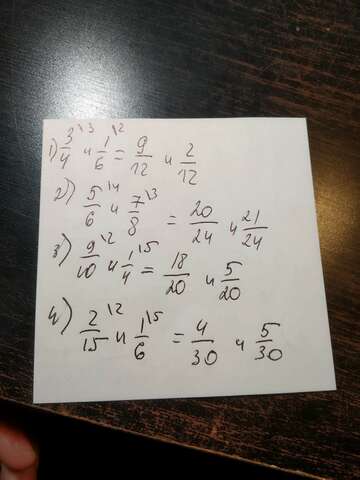 1) 3/4 \3 и 1/6 \2 = 9/12 и 2/12
2) 5/6 \4 и 7/8 \3 = 20/24 и 21/24
3) 9/10 \2 и 1/4 \5 = 18/20 и 5/20
4) 2/15 \2 и 1/6 \5 = 4/30 и 5/30